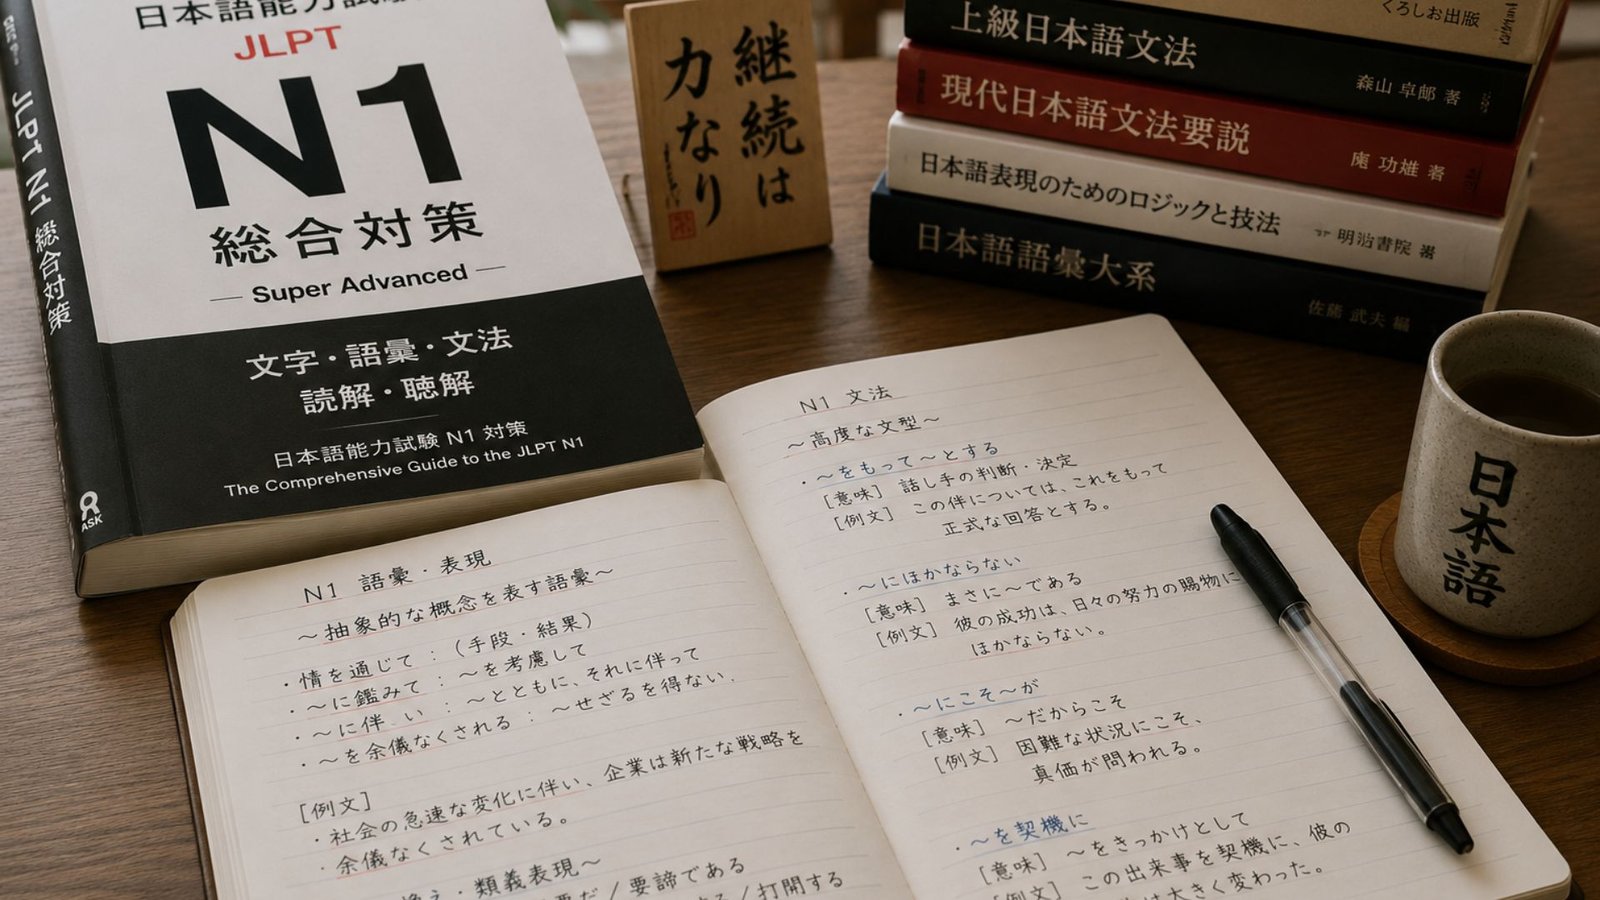 日本語能力試験
JLPT
N1
総合対策
Super Advanced
文字・語彙・文法
読解・聴解
日本語能力試験 N1 対策
The Comprehensive Guide to the JLPT N1
JLPT N1 総合対策
ASK
継続は
力なり
くろしお出版
上級日本語文法
森山 卓郎 著
現代日本語文法要説
庵 功雄 著
日本語表現のためのロジックと技法
明治書院
日本語語彙大系
佐藤 武夫 編
日本語
N1 語彙・表現
～抽象的な概念を表す語彙～
・情を通じて：（手段・結果）
・～に鑑みて：～を考慮して
・～に伴い：～とともに、それに伴って
・～を余儀なくされる：～せざるを得ない.
［例文］
・社会の急速な変化に伴い、企業は新たな戦略を
余儀なくされている。
え・類義表現～
だ / 要諦である
る / 打開する
N1 文法
～高度な文型～
・～をもって～とする
［意味］ 話し手の判断・決定
［例文］ この件については、これをもって
正式な回答とする。
・～にほかならない
［意味］ まさに～である
［例文］ 彼の成功は、日々の努力の賜物に
ほかならない。
・～にこそ～が
［意味］ ～だからこそ
［例文］ 困難な状況にこそ、
真価が問われる。
・～を契機に
［意味］ ～をきっかけとして
［例文］ この出来事を契機に、彼の
は大きく変わった。